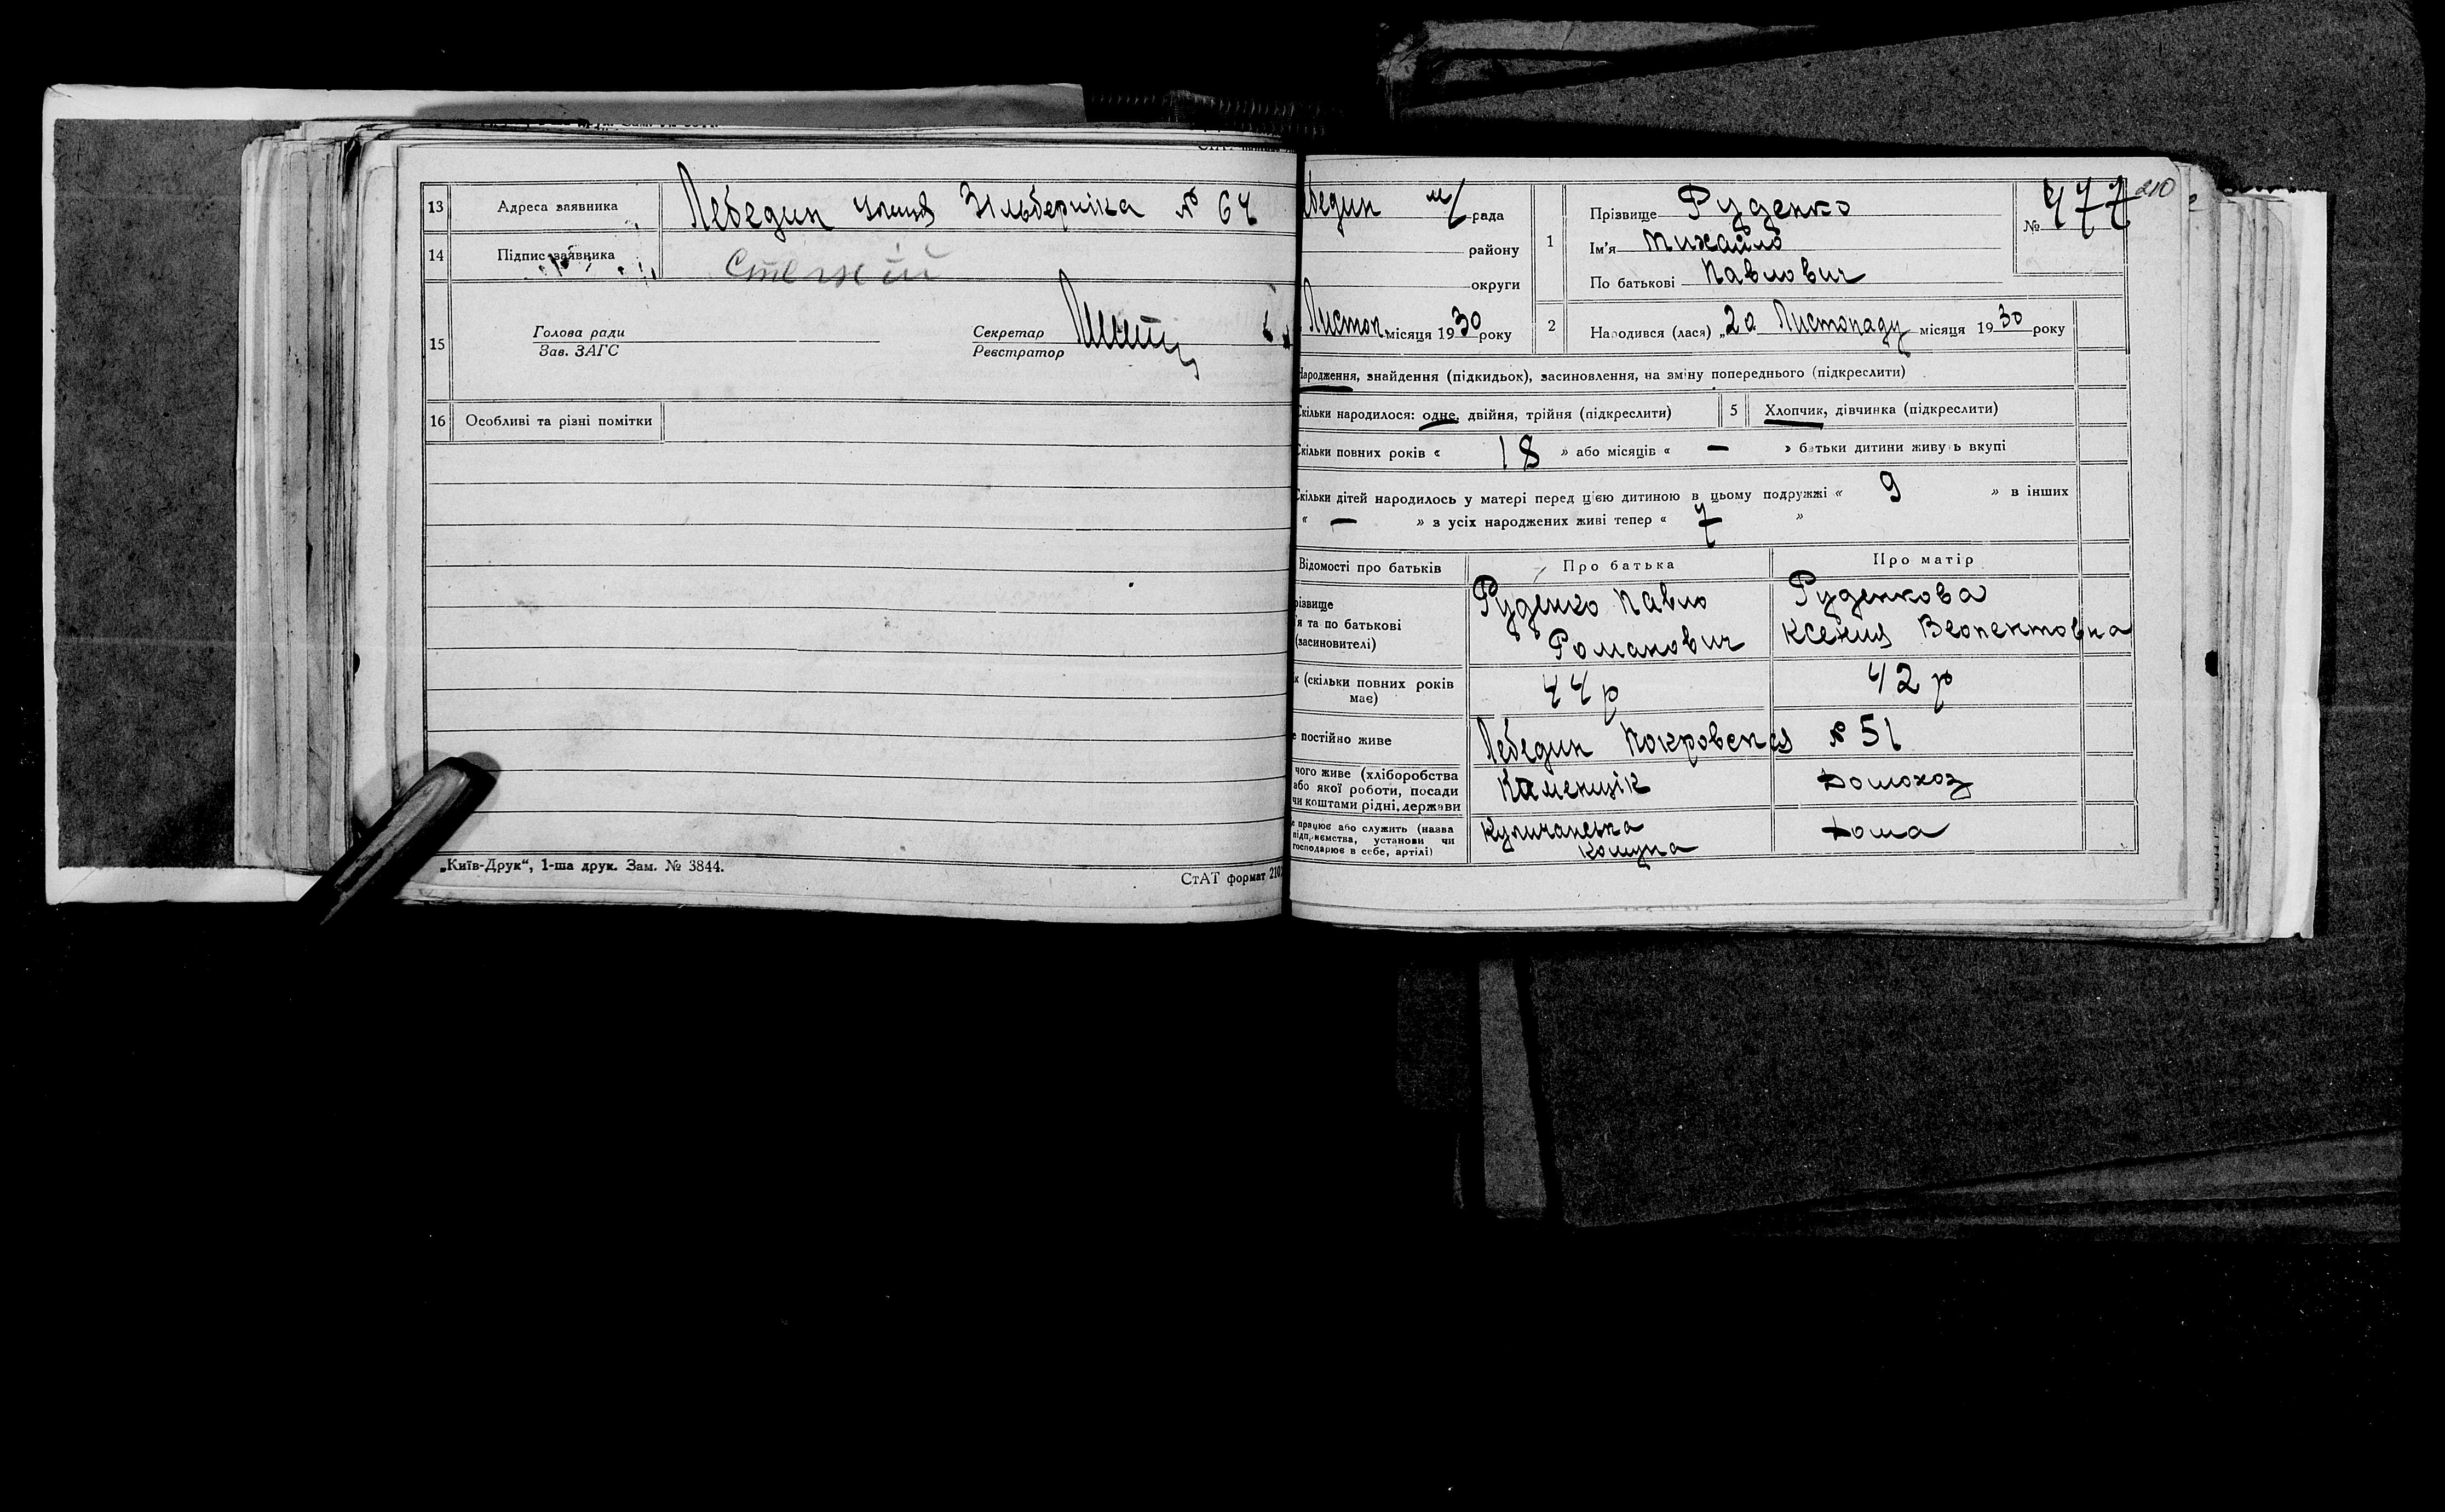 13 Адреса заявника Лебедин улиця Зільберніка № 64
14 Підпис заявника
15 Голова ради
Зав. ЗАГС
Секретар
Реєстратор
16 Особливі та різні помітки
„Київ-Друк“, 1-ша друк. Зам. № 3844.
СтАТ формат 210
бедин м/рада
району
округи
Листоп місяця 1930 року
1 Прізвище Руденко
Ім'я Михайло
По батькові Павлович
№ 477
210
2 Народився (лася) „2го Листопаду місяця 1930 року
Народження, знайдення (підкидьок), засиновлення, на зміну попереднього (підкреслити)
Скільки народилося: одне, двійня, трійня (підкреслити) 5 Хлопчик, дівчинка (підкреслити)
Скільки повних років « 18 » або місяців « — » батьки дитини живуть вкупі
Скільки дітей народилось у матері перед цією дитиною в цьому подружжі « 9 » в інших
« — » з усіх народжених живі тепер « 7 »
Відомості про батьків Про батька Про матір
різвище
я та по батькові
(засиновителі)
Руденко Павло
Романович
Руденкова
Ксения
к (скільки повних років
має)
44 р 42 р
е постійно живе Лебедин № 51
чого живе (хліборобства
або якої роботи, посади
чи коштами рідні, держави
Каменщік Домохоз
е працює або служить (назва
підприємства, установи чи
господарює в себе, артілі)
Куличанська
комуна
Дома